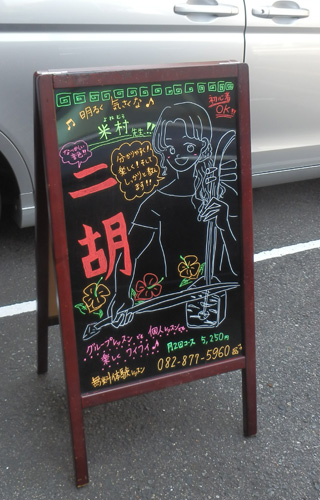 ♪ 明るく 気さくな ♪
初心者
OK!!
よねむら
米村先生!!
なつかしい
音色♡
分かりやすく!
楽しく!そして
しっかりと教え
ます!!
二胡
グループレッスン 個人レッスン
楽しく ワイワイ♪
月2回コース 5,250円
無料体験レッスン 082-877-5960